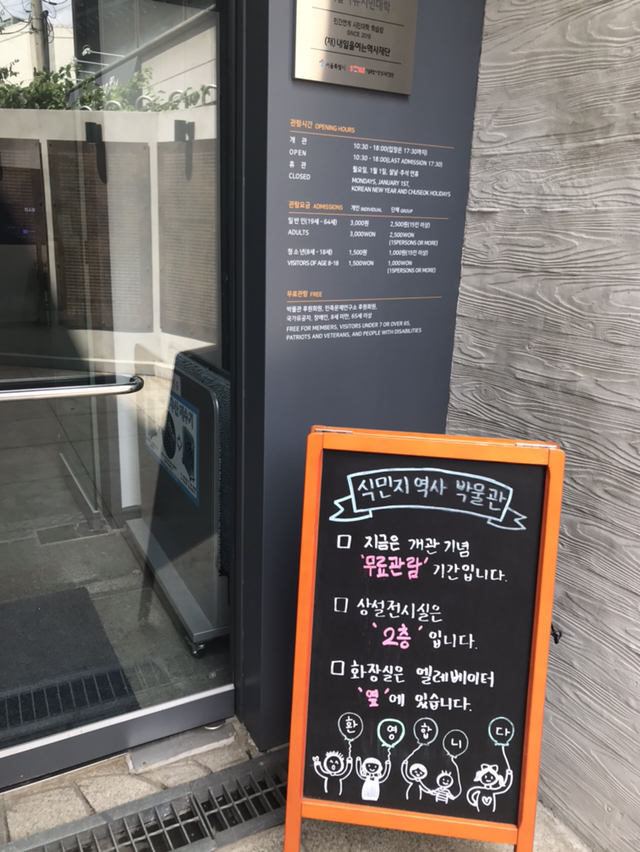 민간연계 시민대학 학습장
SINCE 2018
(재)내일을여는역사재단
서울특별시
관람시간 OPENING HOURS
개 관 10:30 - 18:00(입장은 17:30까지)
OPEN 10:30 - 18:00(LAST ADMISSION 17:30)
휴 관 월요일, 1월 1일, 설날·추석 연휴
CLOSED MONDAYS, JANUARY 1ST,
KOREAN NEW YEAR AND CHUSEOK HOLIDAYS
관람요금 ADMISSIONS 개인 INDIVIDUAL 단체 GROUP
일반인(19세 - 64세) 3,000원 2,500원(15인 이상)
ADULTS 3,000WON 2,500WON
(15PERSONS OR MORE)
청소년(8세 - 18세) 1,500원 1,000원(15인 이상)
VISITORS OF AGE 8-18 1,500WON 1,000WON
(15PERSONS OR MORE)
무료관람 FREE
박물관 후원회원, 민족문제연구소 후원회원,
국가유공자, 장애인, 8세 미만, 65세 이상
FREE FOR MEMBERS, VISITORS UNDER 7 OR OVER 65,
PATRIOTS AND VETERANS, AND PEOPLE WITH DISABILITIES
식민지 역사 박물관
지금은 개관 기념
'무료관람' 기간입니다.
상설전시실은
'2층' 입니다.
화장실은 엘레베이터
'옆'에 있습니다.
환 영 합 니 다